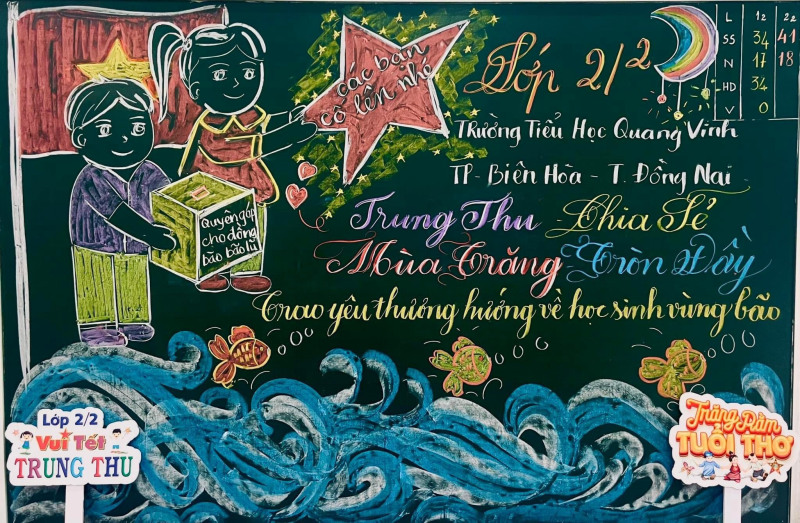 các bạn
cố lên nhé
Lớp 2/2
L 12 22
SS 34 41
N 17 18
HD 34
V 0
Trường Tiểu Học Quang Vinh
TP - Biên Hòa - T. Đồng Nai
Trung Thu Chia Sẻ
Mùa Trăng Tròn Đầy
Trao yêu thương hướng về học sinh vùng bão
Quyên góp
cho đồng
bào bão lũ
Lớp 2/2
Vui Tết
TRUNG THU
Trăng Rằm
TUỔI THƠ